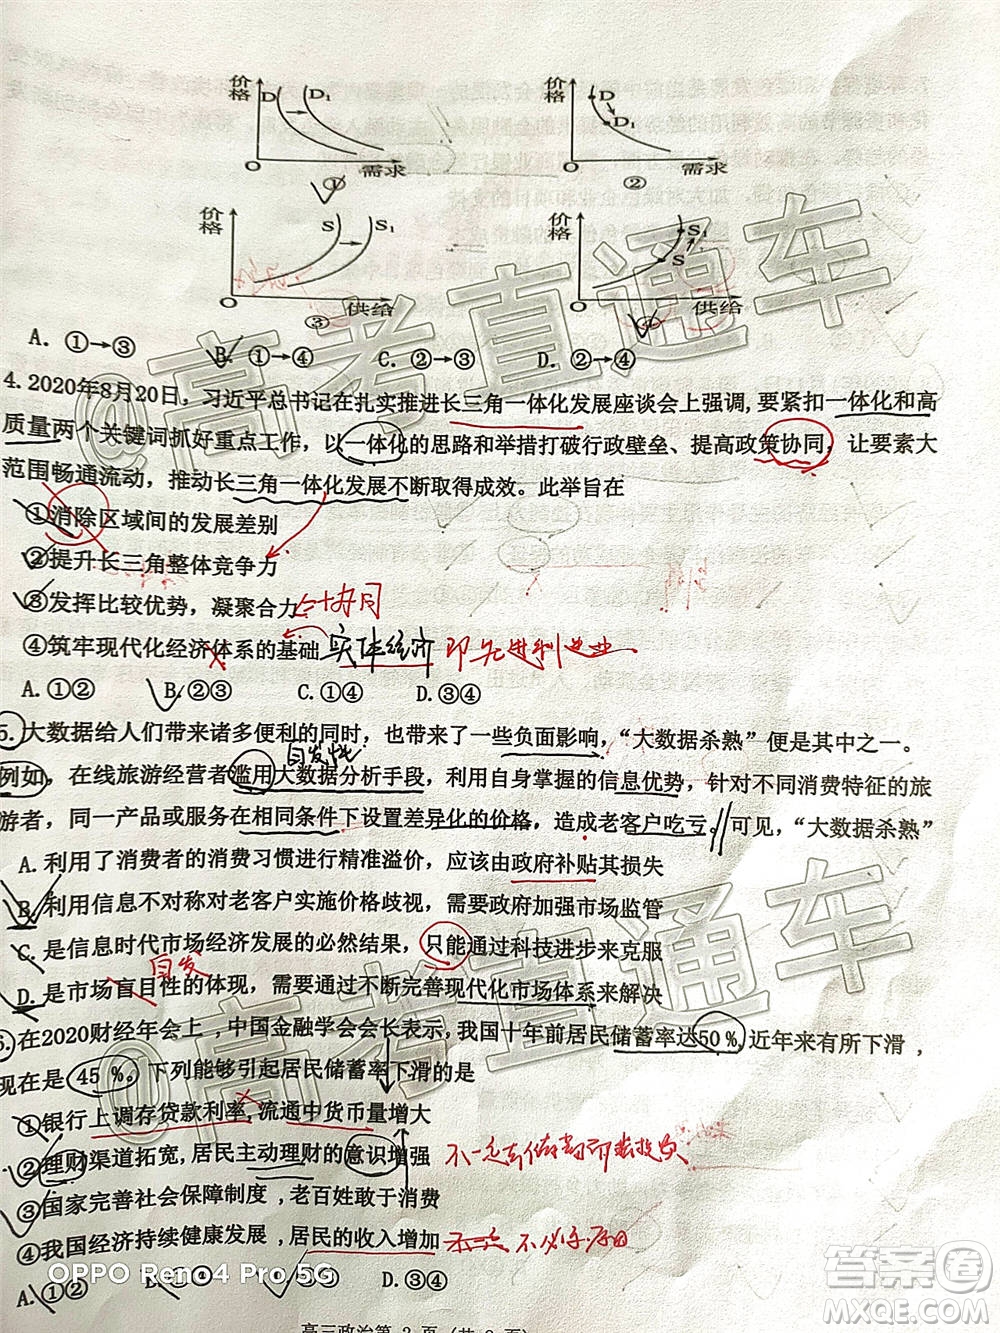 价格 D D₁ O 需求 ①
价格 D D₁ O 需求 ②
价格 S S₁ O 供给 ③
价格 S S₁ O 供给 ④
A. ①→③ B. ①→④ C. ②→③ D. ②→④
4. 2020年8月20日，习近平总书记在扎实推进长三角一体化发展座谈会上强调，要紧扣一体化和高
质量两个关键词抓好重点工作，以一体化的思路和举措打破行政壁垒、提高政策协同，让要素大
范围畅通流动，推动长三角一体化发展不断取得成效。此举旨在
①消除区域间的发展差别
②提升长三角整体竞争力
③发挥比较优势，凝聚合力 协同
④筑牢现代化经济体系的基础 实体经济 即先进制造业
A. ①② B. ②③ C. ①④ D. ③④
5. 大数据给人们带来诸多便利的同时，也带来了一些负面影响，“大数据杀熟”便是其中之一。
自发性
例如，在线旅游经营者滥用大数据分析手段，利用自身掌握的信息优势，针对不同消费特征的旅
游者，同一产品或服务在相同条件下设置差异化的价格，造成老客户吃亏。可见，“大数据杀熟”
A. 利用了消费者的消费习惯进行精准溢价，应该由政府补贴其损失
B. 利用信息不对称对老客户实施价格歧视，需要政府加强市场监管
C. 是信息时代市场经济发展的必然结果，只能通过科技进步来克服
自发
D. 是市场盲目性的体现，需要通过不断完善现代化市场体系来解决
6. 在2020财经年会上，中国金融学会会长表示，我国十年前居民储蓄率达50%，近年来有所下滑，
现在是45%。下列能够引起居民储蓄率下滑的是
①银行上调存贷款利率，流通中货币量增大
②理财渠道拓宽，居民主动理财的意识增强
③国家完善社会保障制度，老百姓敢于消费
④我国经济持续健康发展，居民的收入增加
A. ①② B. ②③ C. ①④ D. ③④
高三政治第 2 页
@高考直通车
@高考直通车
OPPO Reno4 Pro 5G
答案圈
MXQE.COM